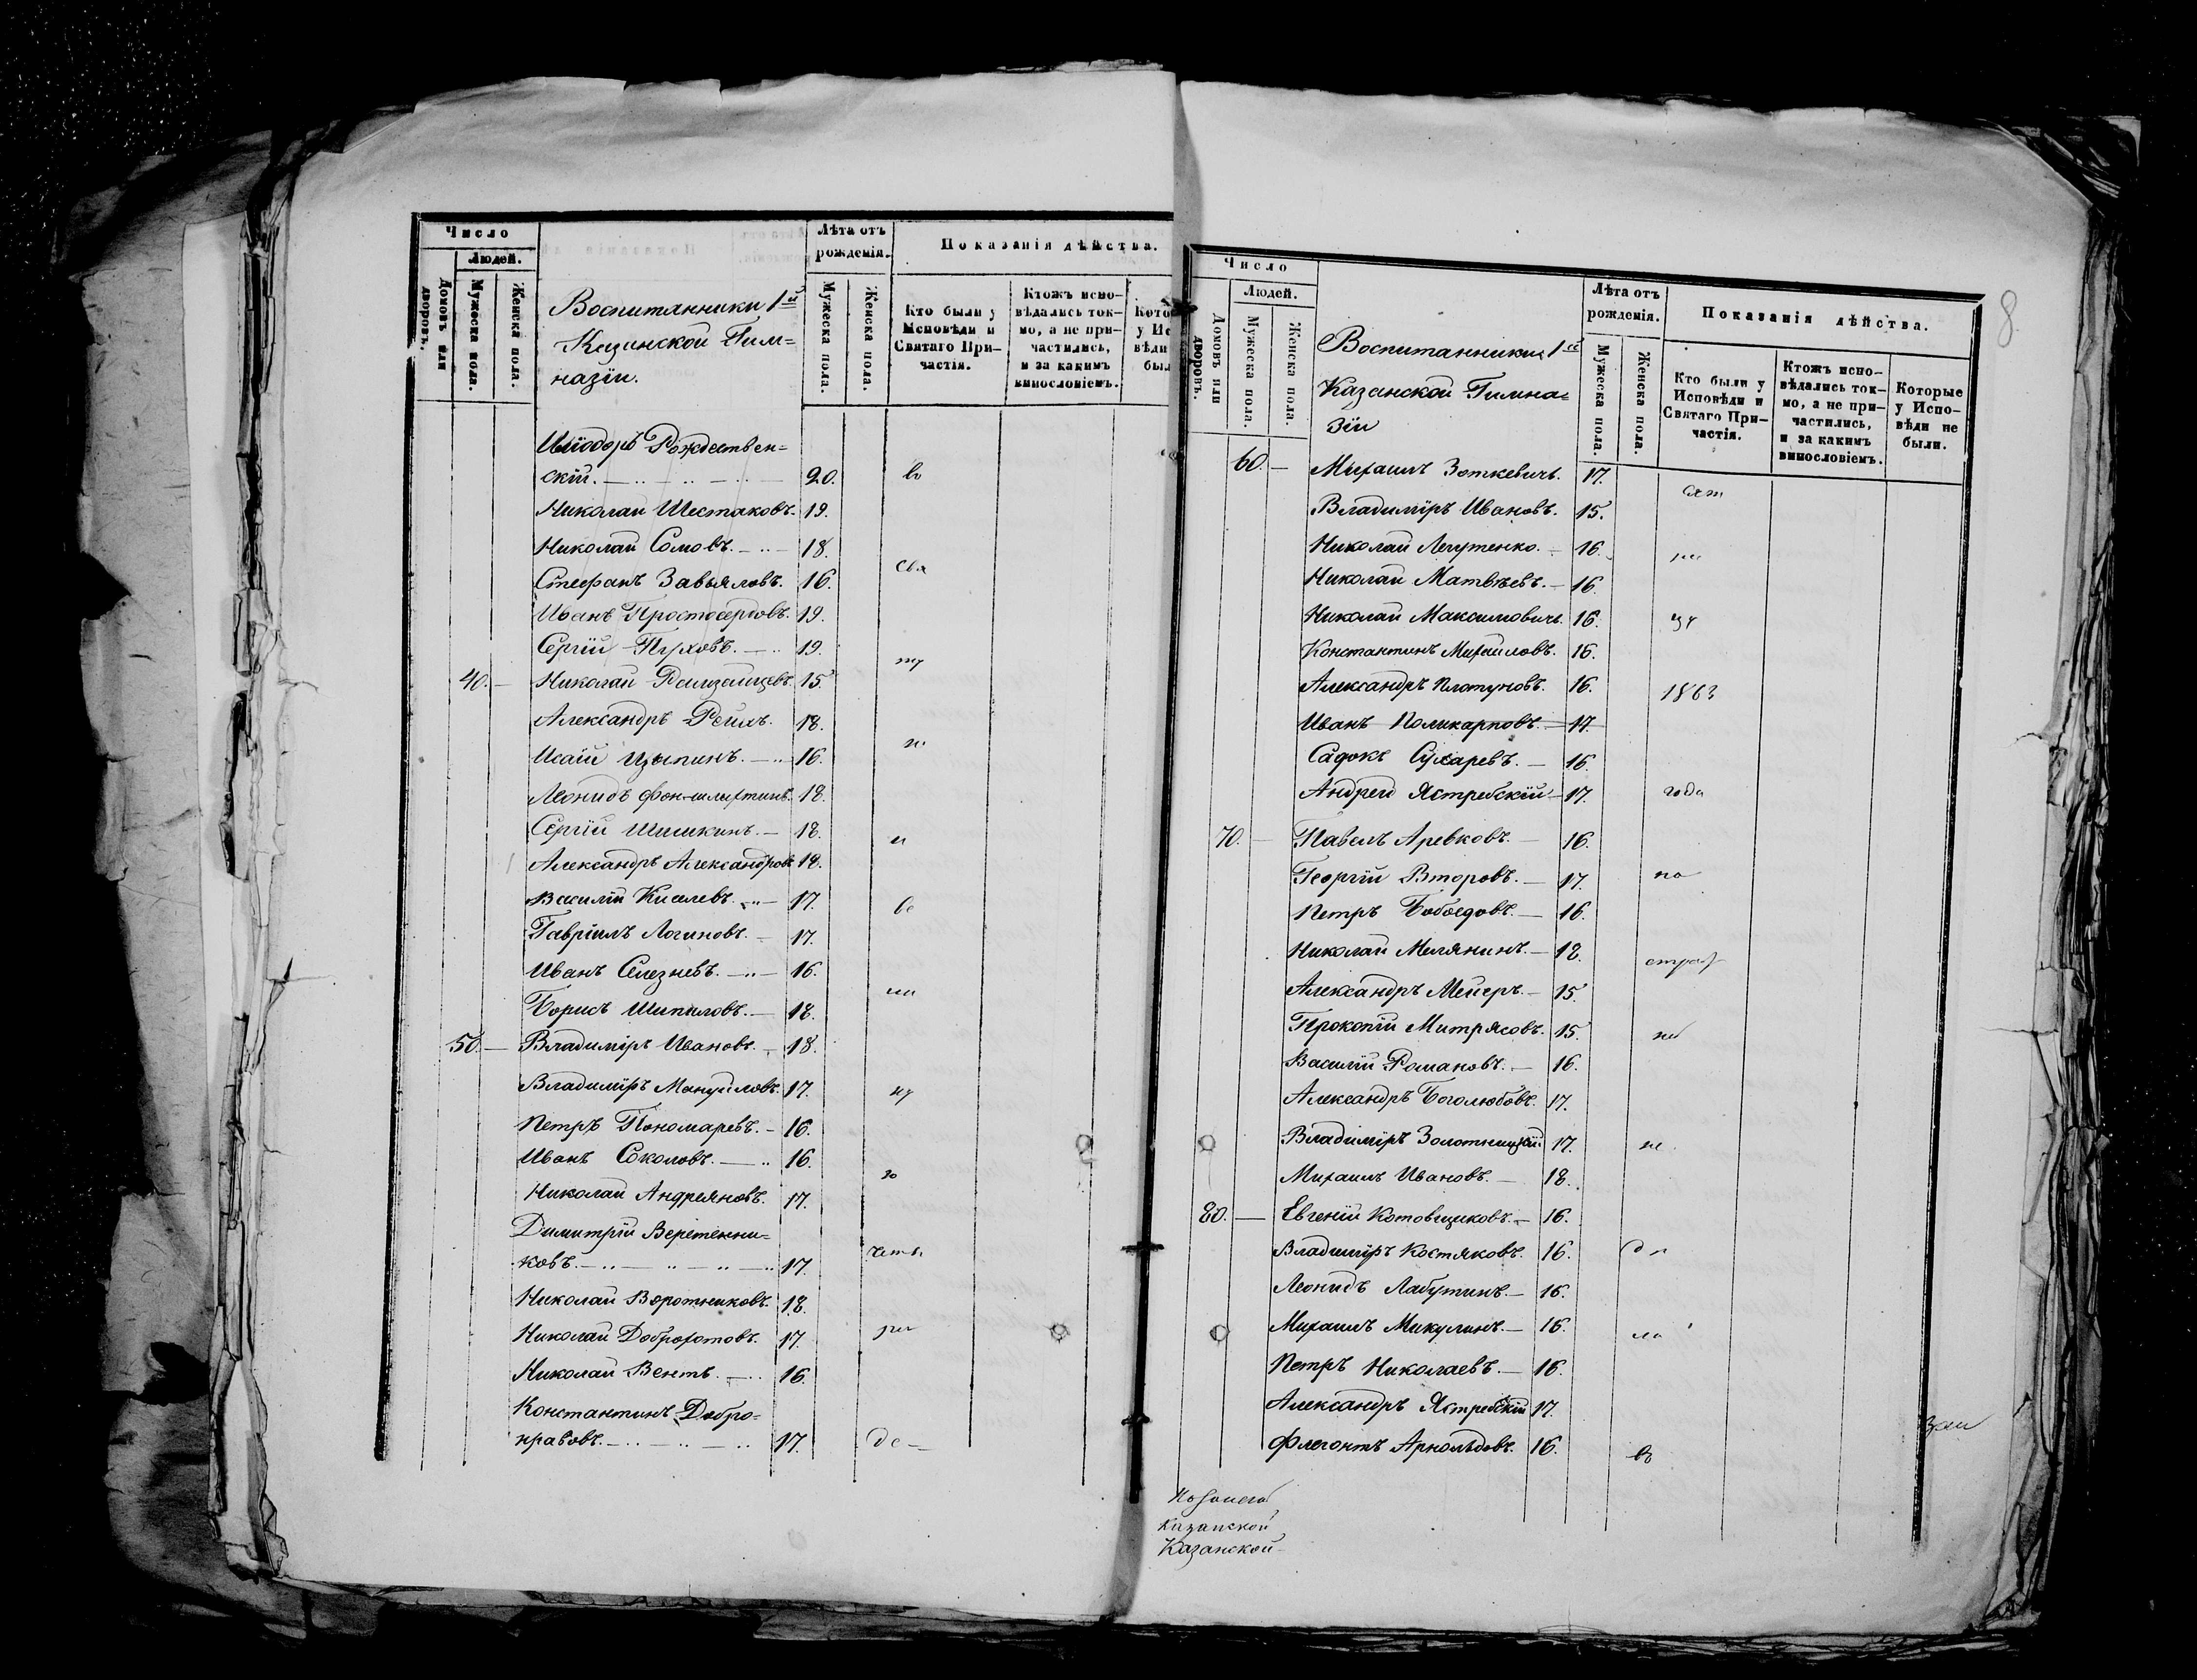 Число
Людей.
Домовъ или дворовъ.
Мужеска пола.
Женска пола.
Воспитанники 1й
Казанской Гим=
назіи.
Лѣта отъ рожденія.
Мужеска пола.
Женска пола.
Показанія дѣйства.
Кто были у Исповѣди и Святаго Причастія.
Ктожъ испо-
вѣдались ток-
мо, а не при-
частились,
и за какимъ
винословіемъ.
Иліодоръ Рождествен=
скій. 20. во
Николай Шестаковъ. 19.
Николай Сомовъ. 18.
Стефанъ Завьяловъ. 16. свя
Иванъ Простосердовъ. 19.
Сергій Пуховъ. 19. ту
40. Николай 15.
Александръ Рейхъ. 18.
Исаій Цыпинъ. 16.
Леонидъ 18.
Сергій Шишкинъ. 18. и
Александръ Александровъ 18.
Василій Киселевъ. 17. ве
Гавріилъ Логиновъ. 17.
Иванъ Селезневъ. 16.
Борисъ Шипиловъ. 18. ли
50. Владиміръ Ивановъ. 18.
Владиміръ Мануйловъ. 17. ку
Петръ Пономаревъ. 16.
Иванъ Соколовъ. 16. ю
Николай Андреяновъ. 17.
Димитрій Веретенни=
ковъ. 17. четы
Николай Воротниковъ. 18.
Николай Доброхотовъ. 17. ре
Николай Вентъ. 16.
Константинъ Добро=
нравовъ. 17. де
8
Число
Людей.
Домовъ или дворовъ.
Мужеска пола.
Женска пола.
Воспитанники 1й
Казанской Гимна=
зіи
Лѣта отъ рожденія.
Мужеска пола.
Женска пола.
Показанія дѣйства.
Кто были у
Исповѣди и
Святаго При-
частія.
Ктожъ испо-
вѣдались ток-
мо, а не при-
частились,
и за какимъ
винословіемъ.
Которые
у Испо-
вѣди не
были.
60. Михаилъ Зоткевичъ. 17. сят
Владиміръ Ивановъ. 15.
Николай 16.
Николай Матвѣевъ. 16.
Николай Максимовичъ. 16.
Константинъ Михайловъ. 16.
Александръ Платуновъ. 16. 1863
Иванъ Поликарповъ. 17.
Садокъ Сухаревъ. 16.
Андрей Ястребскій 17. года
70. Павелъ Аревковъ. 16.
Георгій Второвъ. 17. на
Петръ Бобоедовъ. 16.
Николай Мелянинъ. 18. страст
Александръ Мейеръ. 15.
Прокопій Митрясовъ. 15. ной
Василій Романовъ. 16.
Александръ Боголюбовъ. 17.
Владиміръ Золотницкій 17. не
Михаилъ Ивановъ. 18.
80. Евгеній Котовщиковъ. 16.
Владиміръ Костяковъ. 16. дѣ
Леонидъ Лабутинъ. 16.
Михаилъ Микулинъ. 16. лѣ
Петръ Николаевъ. 16.
Александръ Ястребскій 17.
Флегонтъ Арнольдовъ. 16.
Казанской
Казанской